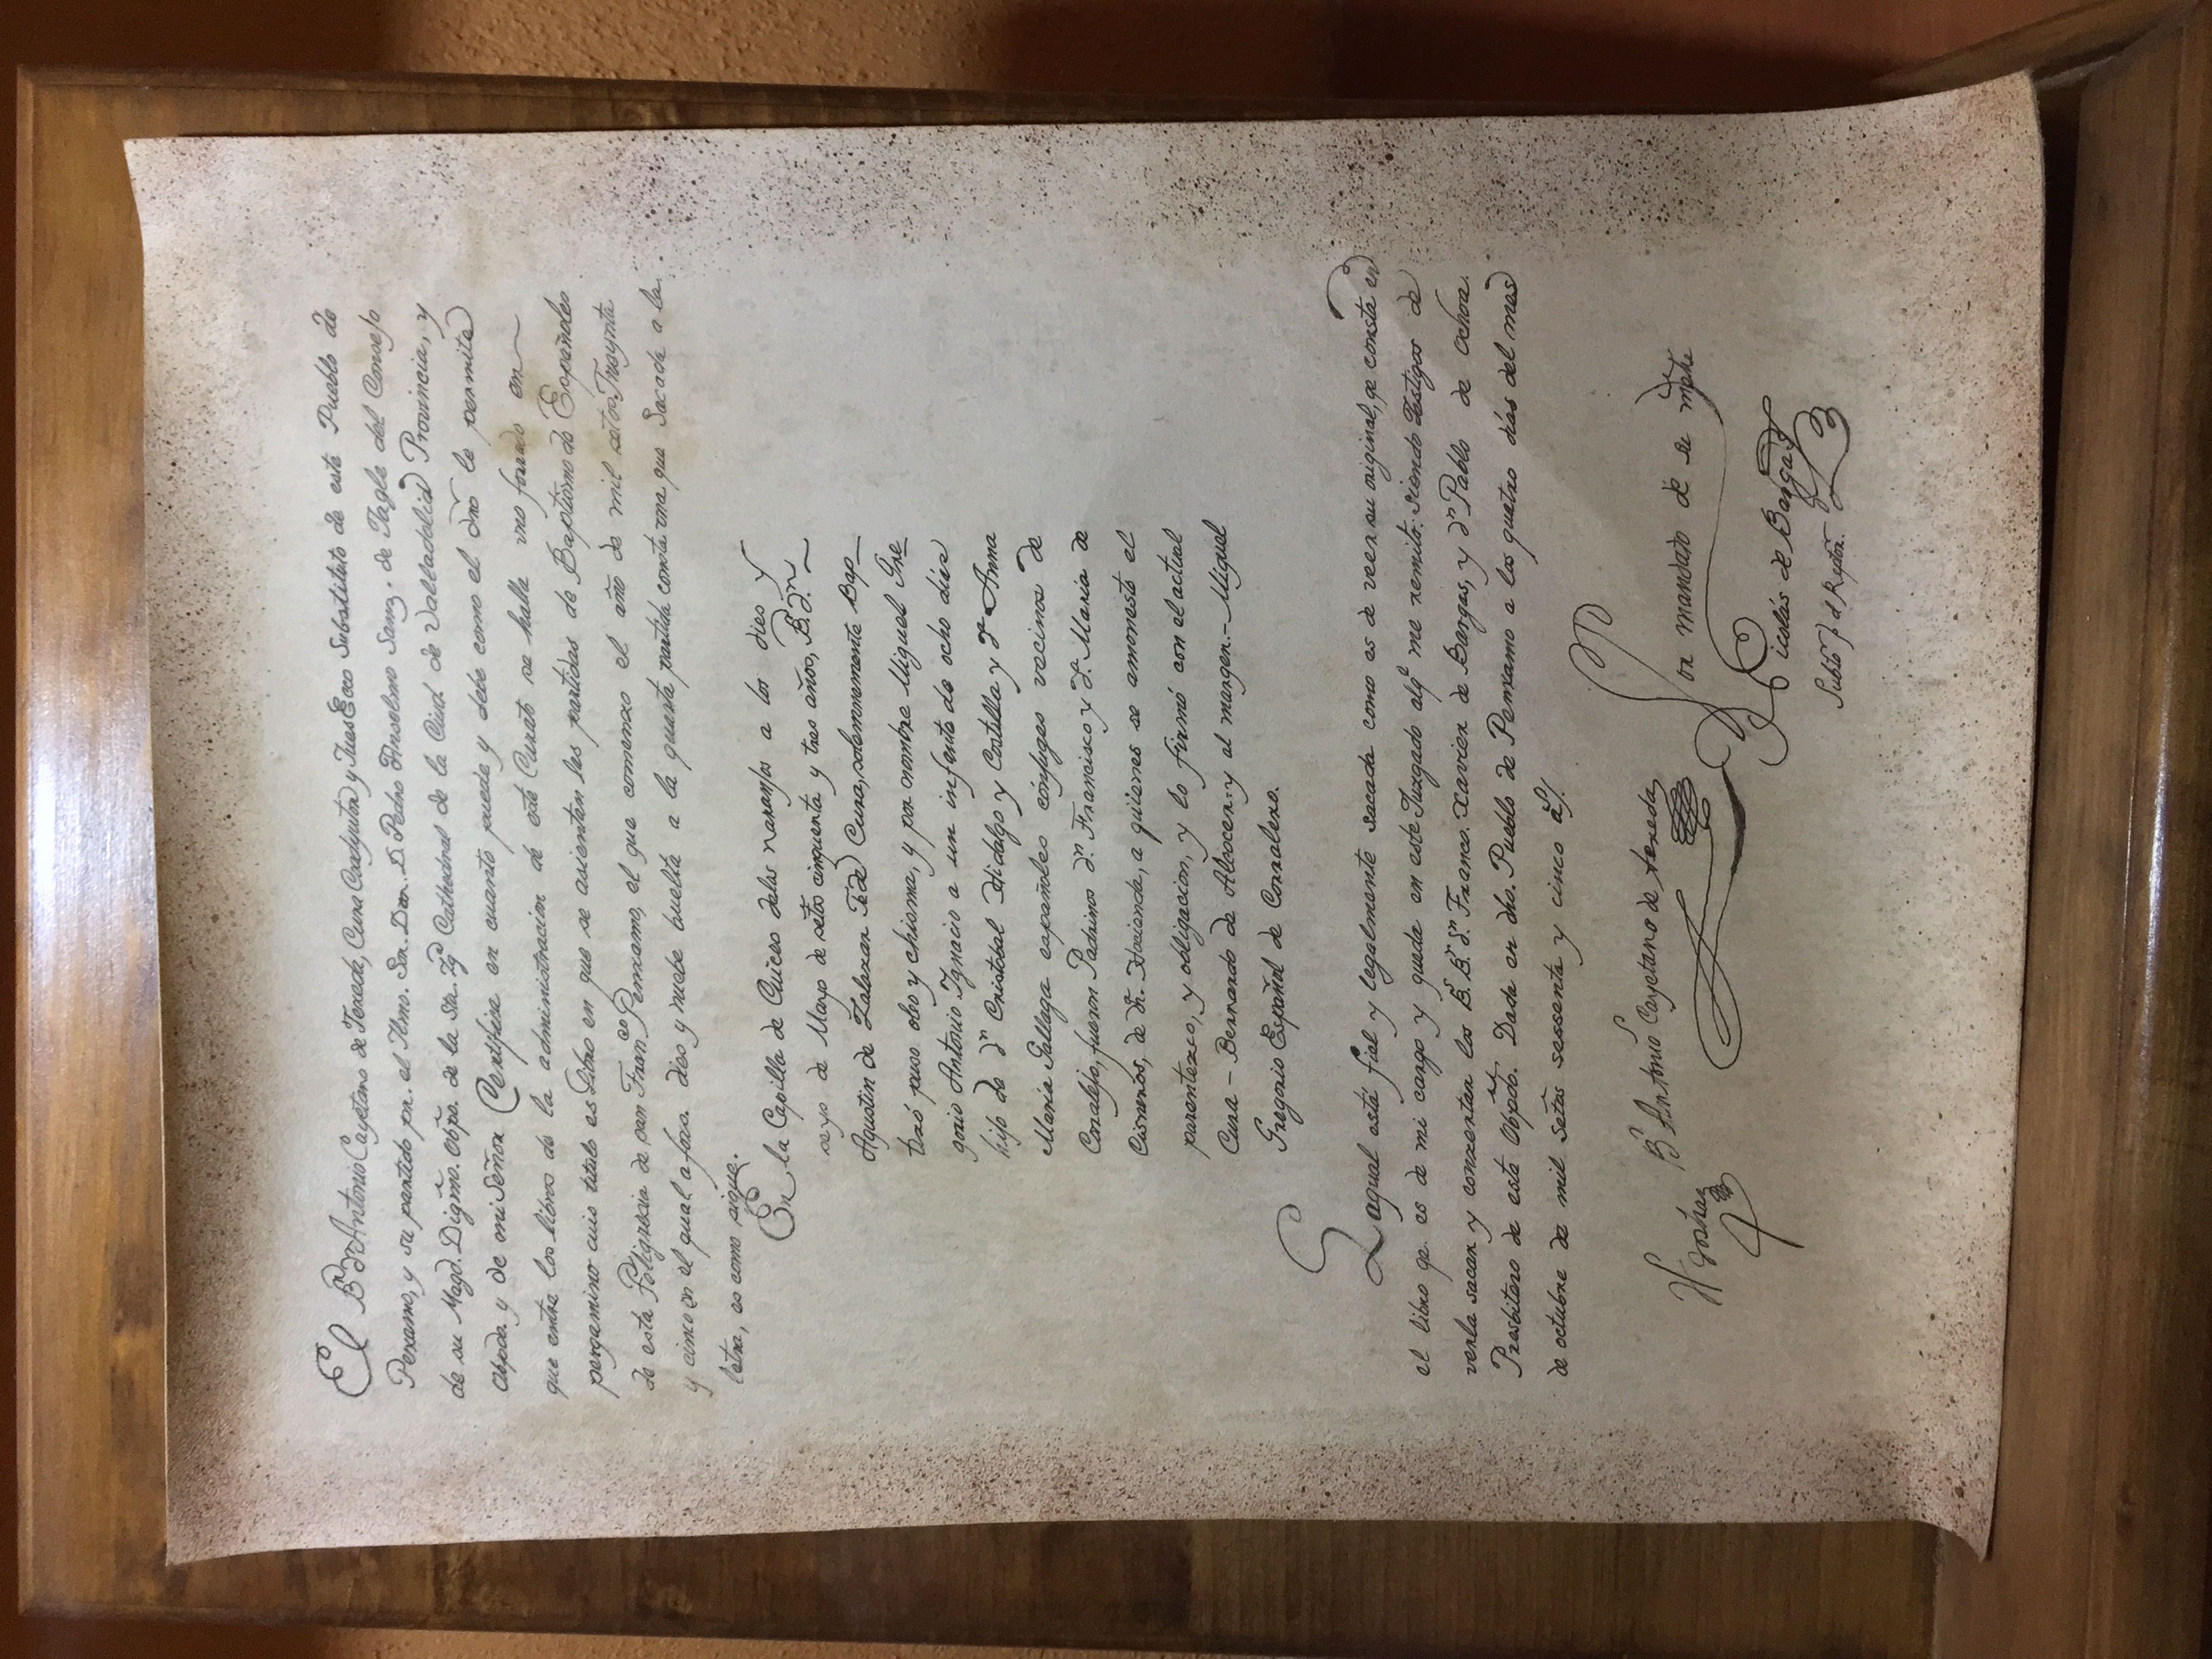 El Br. dn Antonio Cayetano de Texeda, Cura Coadyutor y Jues Ecco Substituto de este Pueblo de
Penxamo, y su partido pr. el Ilmo. Sor. Dor. D. Pedro Anselmo Sanz. de Tagle del Consejo
de su Magd. Digmo. Obpo. de la Sta. Yga Cathedral de la Ciud. de Valladolid Provincia, y
Obpdo. y de mi Señor Certifica en cuanto puede y debe como el dro le permite
que entre los libros de la administracion de este Curato se halla uno forrado en
pergamino cuio titulo es Libro en que se asientan las partidas de Baptismo de Españoles
de esta Feligrecia de san Franco Penxamo, el que comenzo el año de mil setos. Treynta
y cinco en el qual a foxs. dies y nuebe buelta a la quarta partida consta una que Sacada a la
letra, es como sigue.
En la Capilla de Cuiceo delos naranjos a los dies y
seys de Mayo de setos cinquenta y tres años, B. dn.
Agustin de Zalazar Te de Cura, solemnemente Bap_
tizó puso oleo y chisma, y por nombre Miguel Gre_
gorio Antonio Ygnacio a un infante de ocho días
hijo de dn Cristobal Hidalgo y Costilla y da Anna
María Gallaga españoles cónjuges vecinos de
Coralejo, fueron Padrinos dn. Francisco y da. María de
Cisneros, de dha. Hacienda, a quienes se amonesto el
parentezco, y obligacion, y lo firmó con el actual
Cura – Bernardo de Alcocer: y al margen. – Miguel
Gregorio Español de Corralexo.
Laqual está fiel y legalmente sacada como es de veer su original, qe consta en
el libro qe. es de mi cargo y queda en este Juzgado alqe me remito: siendo Testigos de
verla sacar y conzertar los Bs. Br. dn. Franco. Xavier de Bargas, y dn Pablo de Ochoa.
Presbitero de este Obpdo. Dada en dho. Pueblo de Penxamo a los quatro días del mes
de octubre de mil Setos sessenta y cinco as/.
Br Antonio Cayetano de texeda
Por mandato de su
Nicolás de Bargas